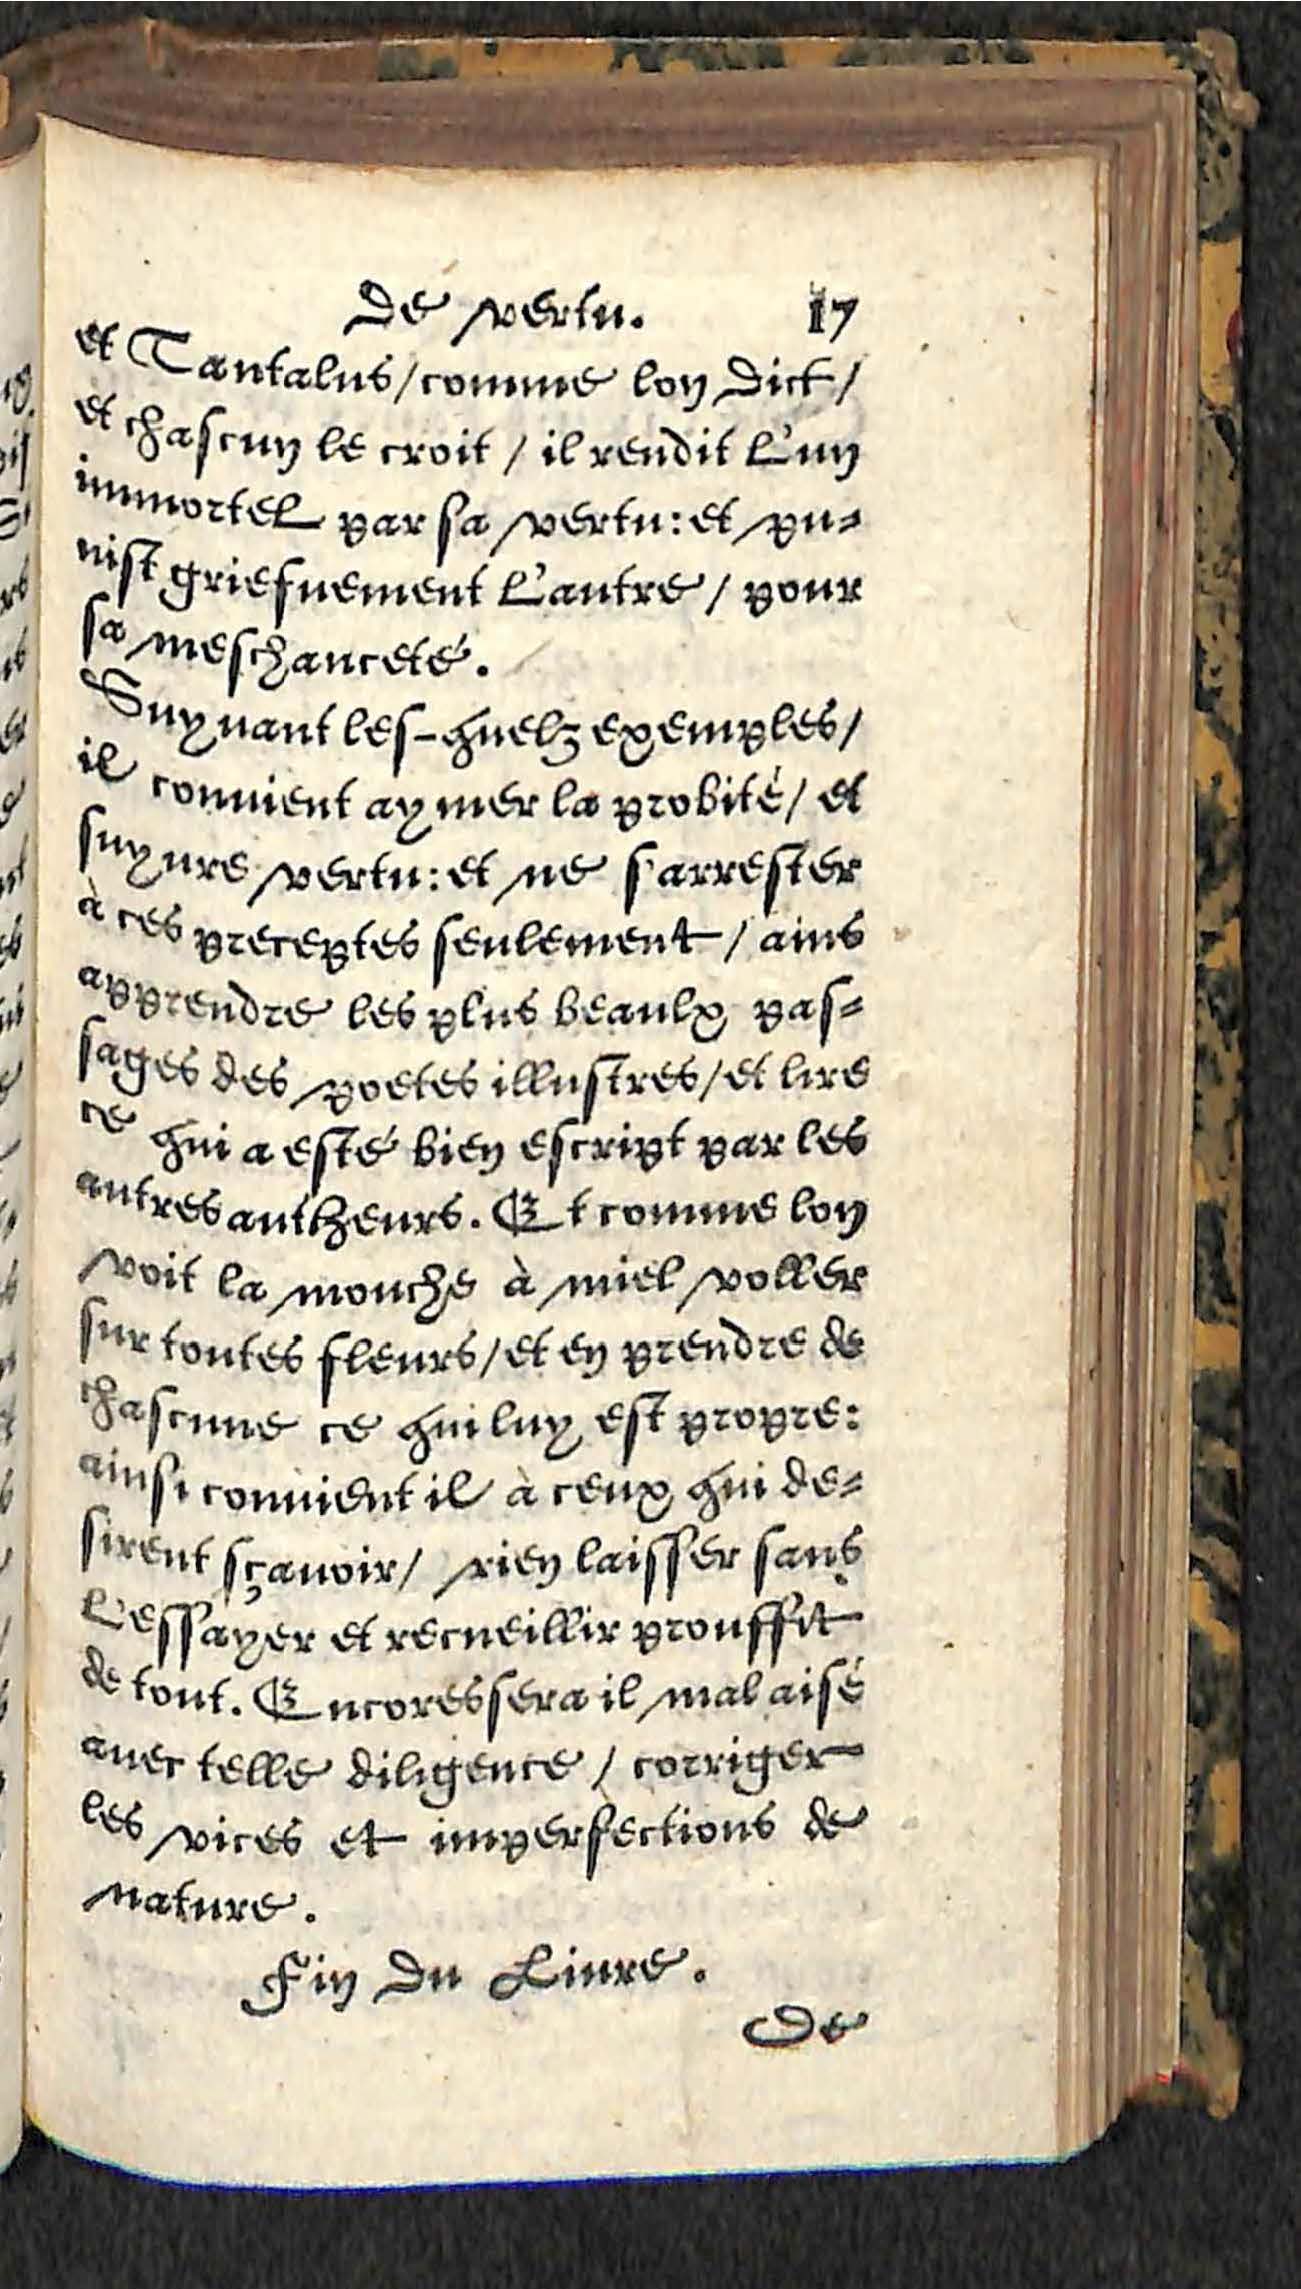 De vertu. 17
et Tantalus/comme lon dict/
et chascun le croit / il rendit L'un
immortel par sa vertu: et pu=
nist griefuement L'autre / pour
sa meschanceté.
Suyuant les-quelz exemples/
il conuient aymer la probité/ et
suyure vertu: et ne s'arrester
à ces preceptes seulement / ains
apprendre les plus beaulx pas=
sages des poetes illustres/et lire
ce qui a esté bien escript par les
autres autheurs. Et comme lon
voit la mouche à miel voller
sur toutes fleurs/et en prendre de
chascune ce qui luy est propre:
ainsi conuient il à ceux qui de=
sirent sçauoir/ rien laisser sans
L'essayer et recueillir prouffit
de tout. Encores sera il mal aisé
auec telle diligence / corriger
les vices et imperfections de
nature.
Fin du Liure.
De